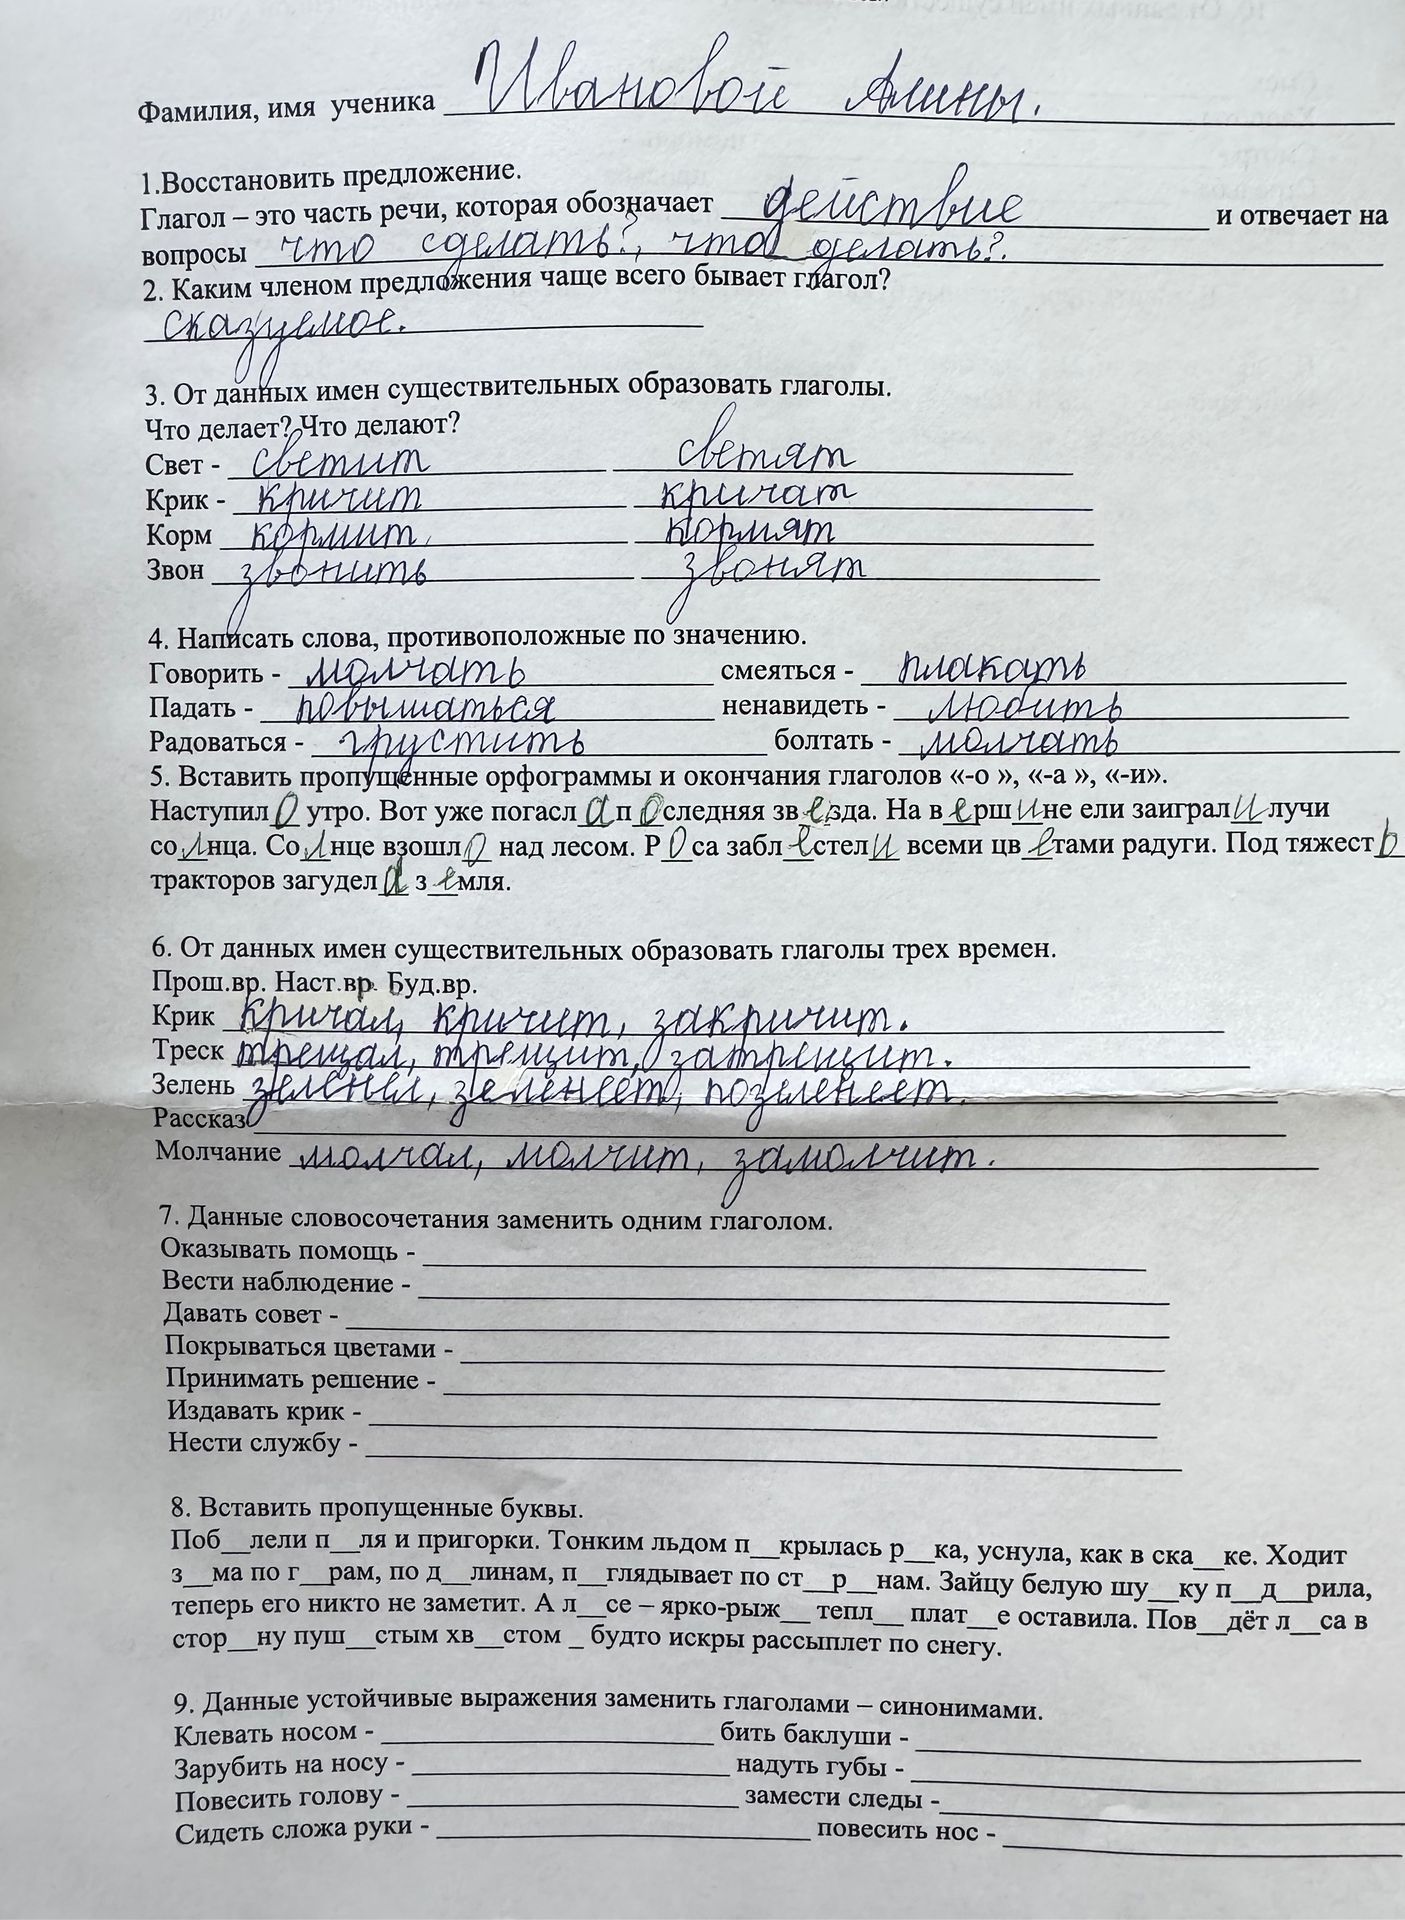 Фамилия, имя ученика Ивановой Алины.
1.Восстановить предложение.
Глагол – это часть речи, которая обозначает действие и отвечает на
вопросы что сделать?, что делать?.
2. Каким членом предложения чаще всего бывает глагол?
сказуемое.
3. От данных имен существительных образовать глаголы.
Что делает? Что делают?
Свет - светит светят
Крик - кричит кричат
Корм кормит, кормят
Звон звонить звонят
4. Написать слова, противоположные по значению.
Говорить - молчать смеяться - плакать
Падать - повышаться ненавидеть - любить
Радоваться - грустить болтать - молчать
5. Вставить пропущенные орфограммы и окончания глаголов «-о », «-а », «-и».
Наступило утро. Вот уже погасла последняя звезда. На вершине ели заиграли лучи
солнца. Солнце взошло над лесом. Роса заблестели всеми цветами радуги. Под тяжесть
тракторов загудела земля.
6. От данных имен существительных образовать глаголы трех времен.
Прош.вр. Наст.вр. Буд.вр.
Крик кричал, кричит, закричит.
Треск трещал, трещит, затрещит.
Зелень зеленел, зеленеет, позеленеет.
Рассказ
Молчание молчал, молчит, замолчит.
7. Данные словосочетания заменить одним глаголом.
Оказывать помощь -
Вести наблюдение -
Давать совет -
Покрываться цветами -
Принимать решение -
Издавать крик -
Нести службу -
8. Вставить пропущенные буквы.
Поб__лели п__ля и пригорки. Тонким льдом п__крылась р__ка, уснула, как в ска__ке. Ходит
з__ма по г__рам, по д__линам, п__глядывает по ст__р__нам. Зайцу белую шу__ку п__д__рила,
теперь его никто не заметит. А л__се – ярко-рыж__ тепл__ плат__е оставила. Пов__дёт л__са в
стор__ну пуш__стым хв__стом _ будто искры рассыплет по снегу.
9. Данные устойчивые выражения заменить глаголами – синонимами.
Клевать носом - бить баклуши -
Зарубить на носу - надуть губы -
Повесить голову - замести следы -
Сидеть сложа руки - повесить нос -